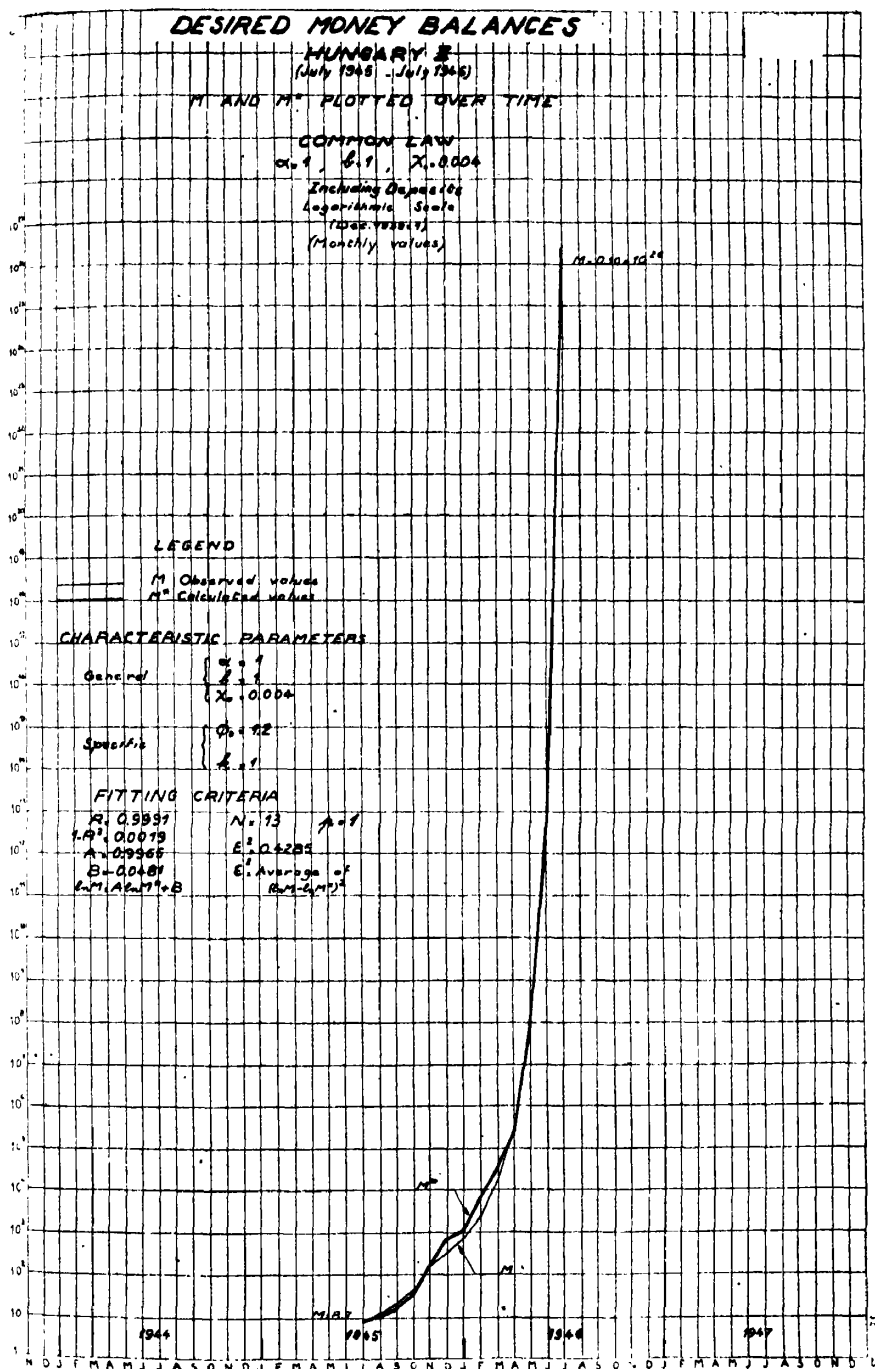 DESIRED MONEY BALANCES
HUNGARY II
(July 1945 - July 1946)
M AND M* PLOTTED OVER TIME
COMMON LAW
α=1, b=1, χ₀=0.004
Including Deposits
Logarithmic Scale
(Monthly values)
LEGEND
M Observed values
M* Calculated values
CHARACTERISTIC PARAMETERS
General
α = 1
b = 1
χ₀ = 0.004
Specific
k = 1
FITTING CRITERIA
R= 0.9991 N= 13 p=1
1-R²= 0.0019
A= 0.9965 E²= 0.4285
B=-0.0481 E²: Average of
lnM=AlnM*+B (lnM-lnM*)²
M*
M
10⁹
10⁸
10⁷
10⁶
10⁵
10⁴
10³
10²
10
1
1944 1945 1946 1947
N D J F M A M J J A S O N D J F M A M J J A S O N D J F M A M J J A S O N D J F M A M J J A S O N D